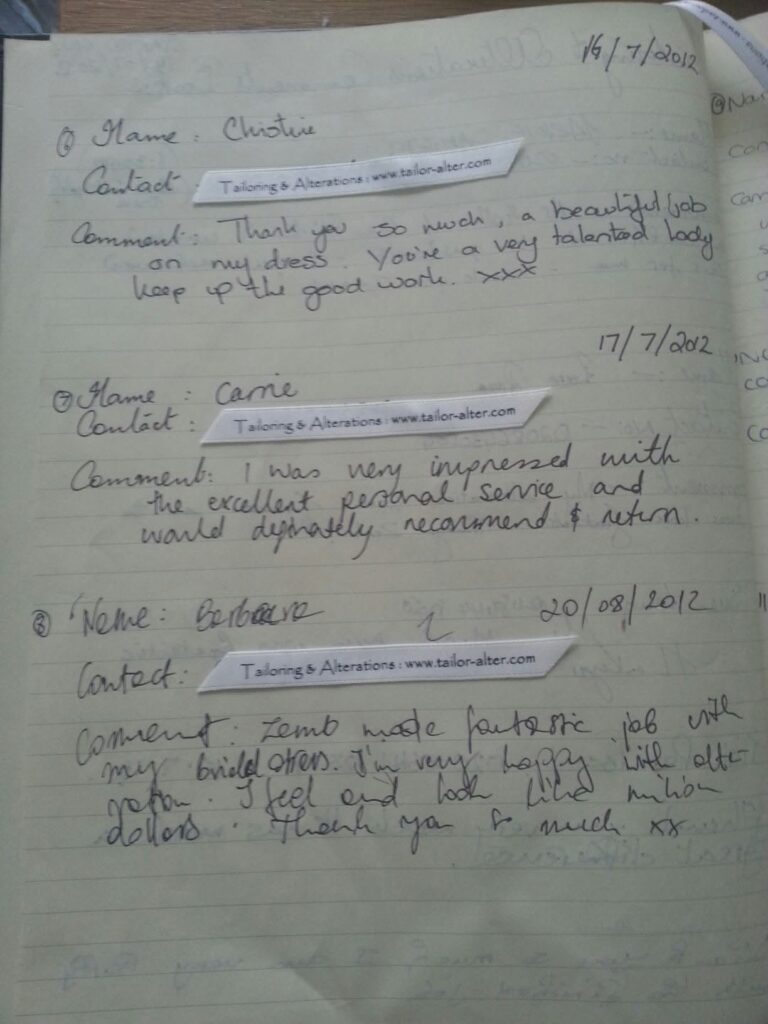 16/7/2012
6 Name : Christine
Contact Tailoring & Alterations : www.tailor-alter.com
Comment : Thank you so much, a beautiful job
on my dress. You're a very talented lady
keep up the good work. xxx
17/7/2012
7 Name : Carrie
Contact : Tailoring & Alterations : www.tailor-alter.com
Comment: I was very impressed with
the excellent personal service and
would definately recommend & return.
8 Name : Barbara 20/08/2012
Contact: Tailoring & Alterations : www.tailor-alter.com
Comment : made fantastic job with
my bridal dress. I'm very happy with alte-
ration. I feel and look like milion
dollars. Thank you so much xx